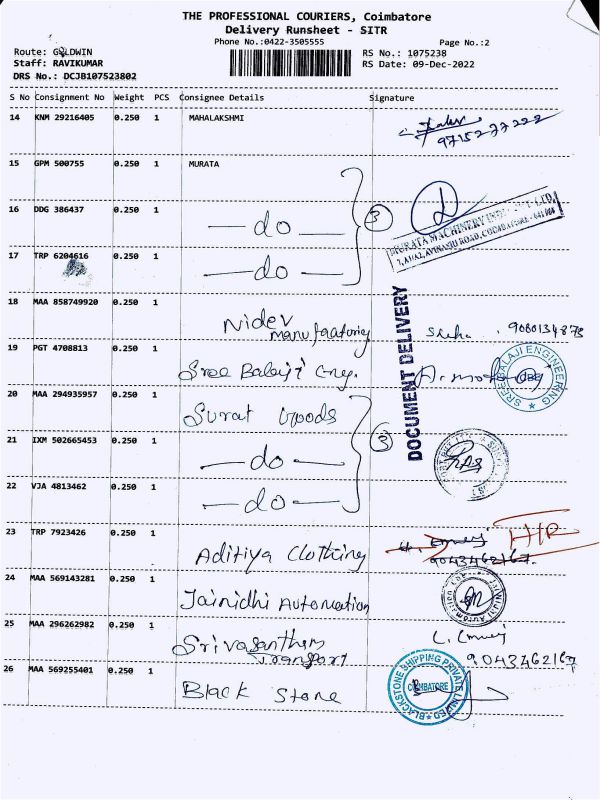 THE PROFESSIONAL COURIERS, Coimbatore
Delivery Runsheet - SITR
Phone No.:0422-3505555 Page No.:2
Route: GOLDWIN RS No.: 1075238
Staff: RAVIKUMAR RS Date: 09-Dec-2022
DRS No.: DCJB107523802
S No Consignment No Weight PCS Consignee Details Signature
14 KNM 29216405 0.250 1 MAHALAKSHMI
9715277222
15 GPM 500755 0.250 1 MURATA
16 DDG 386437 0.250 1 —do— 3
MURATA MACHINERY
AVINASHI ROAD, COIMBATORE - 641
17 TRP 6204616 0.250 1 —do—
18 MAA 858749920 0.250 1 Nidev
manufaatoring 9080134878
DOCUMENT DELIVERY
19 PGT 4708813 0.250 1 Sree Balaji Eng.
SREE BALAJI ENGINEERING CBE
20 MAA 294935957 0.250 1 Surat Goods
21 IXM 502665453 0.250 1 —do— 3
22 VJA 4813462 0.250 1 —do—
23 TRP 7923426 0.250 1 Aditiya Clothing
9043462167.
24 MAA 569143281 0.250 1 Jainidhi Automation
25 MAA 296262982 0.250 1 Srivasantham
Transport 9043462167
26 MAA 569255401 0.250 1 Black Stone
BLACKSTONE SHIPPING PRIVATE LIMITED COIMBATORE